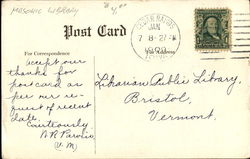 MASONIC LIBRARY
Post Card
CEDAR RAPIDS
JAN
7
1909
IOWA
For Correspondence
Accept our
thanks for
postcard as
per our re-
quest of recent
date.
Courteously
Librarian Public Library,
Bristol,
Vermont.